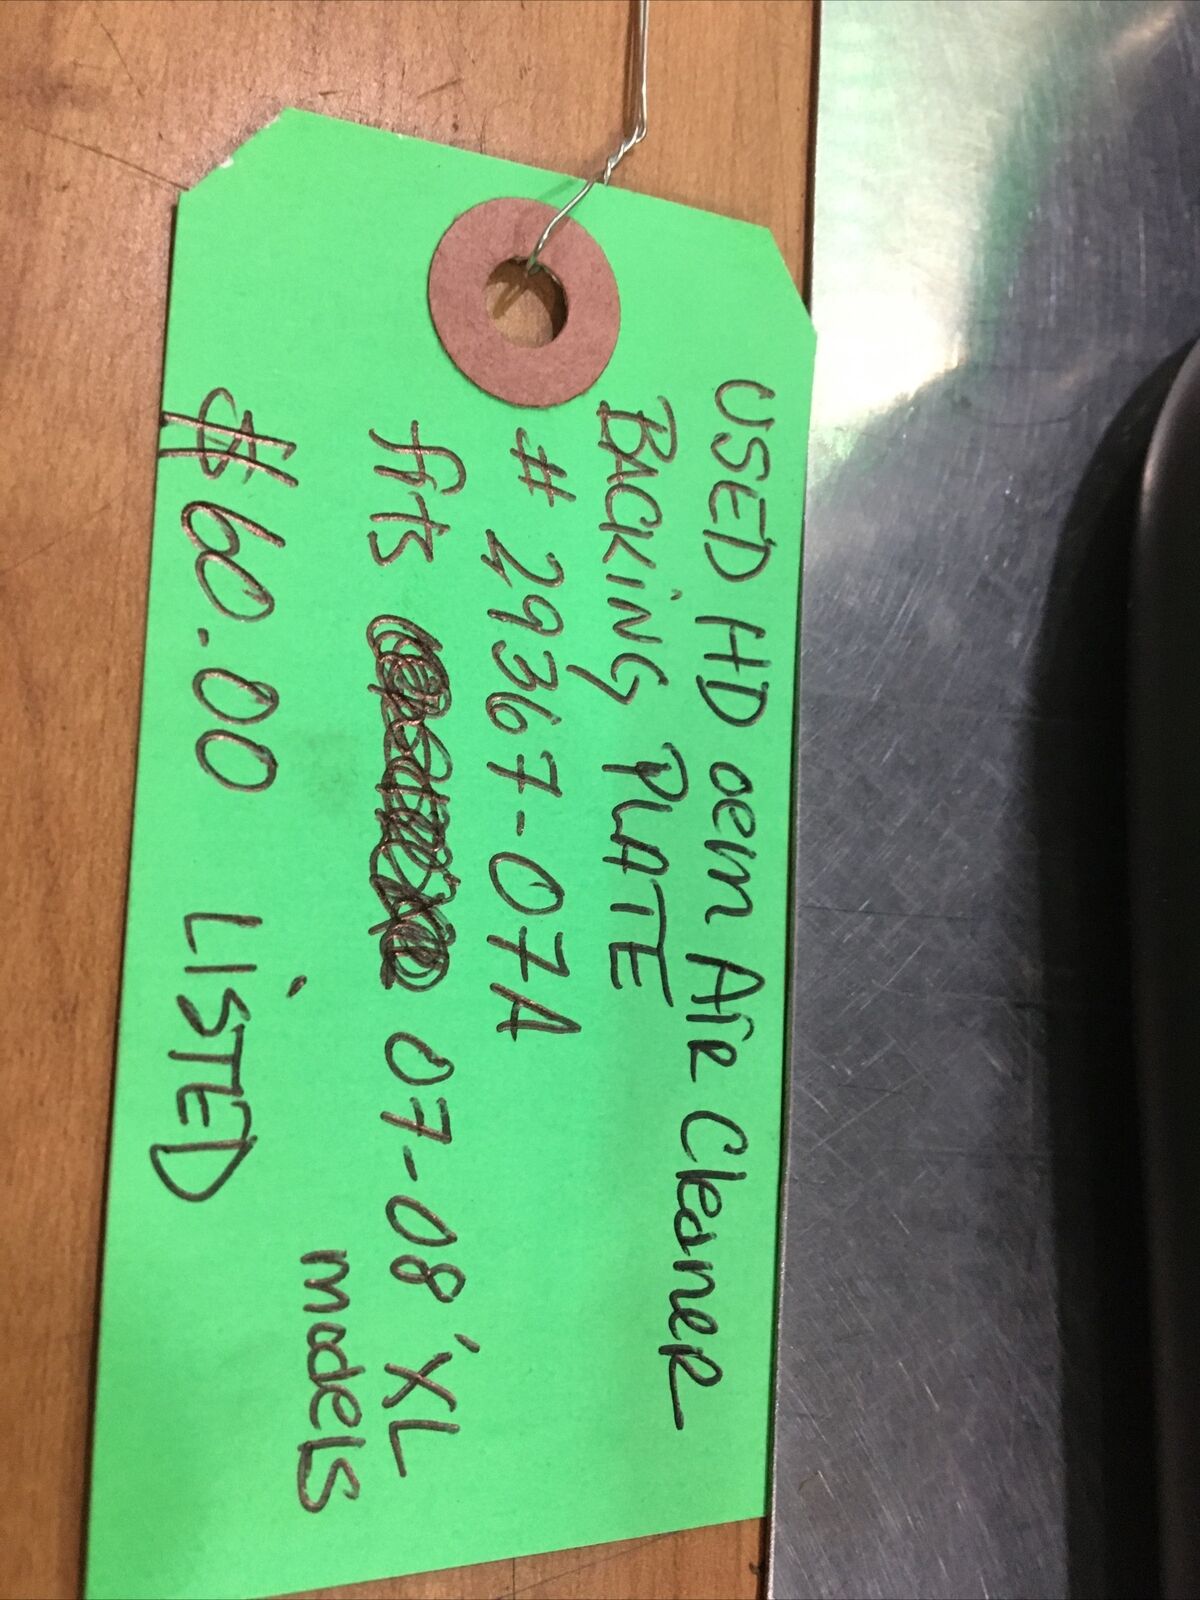 USED HD oem Air Cleaner
BACKiNG PLATE
# 29367-07A
fits 07-08 'XL
models
$60.00 LiSTED